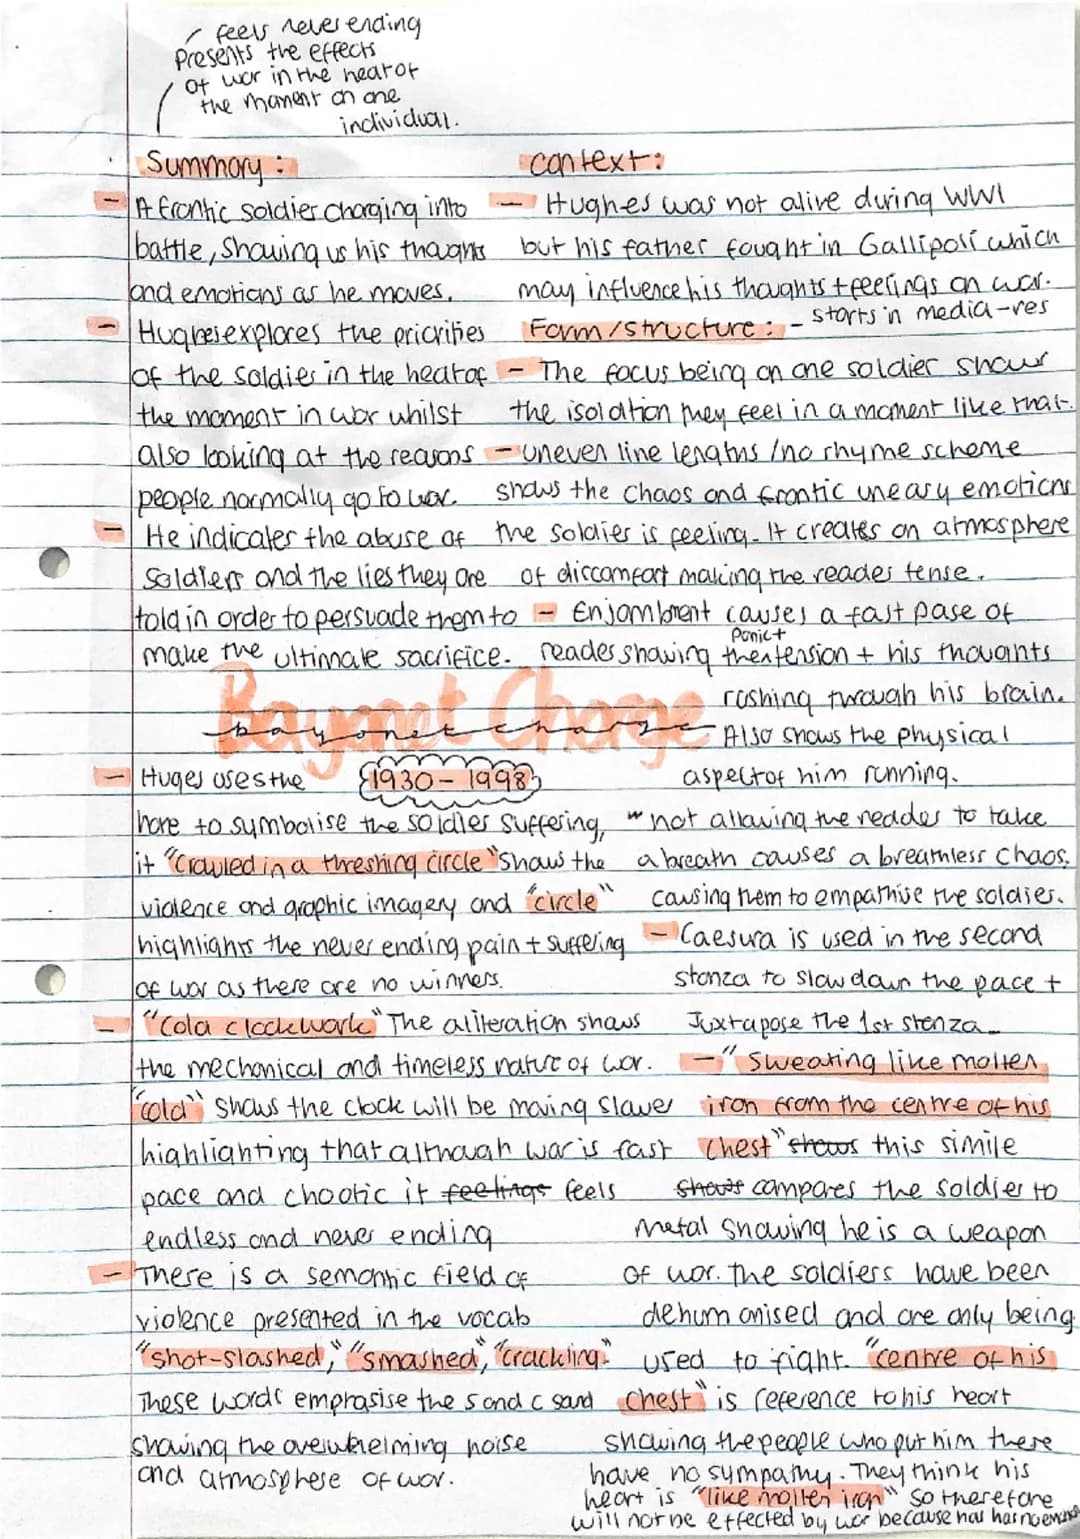 feels never ending
Presents the effects
of war in the heat of
the moment on one
individual.
Summary :
- A frantic soldier charging into
battle, showing us his thoughts
and emotions as he moves.
- Hughes explores the priorities
of the soldier in the heat of
the moment in war whilst
also looking at the reasons
people normally go to war.
- He indicates the abuse of
soldiers and the lies they are
told in order to persuade them to
make the ultimate sacrifice.
context :
- Hughes was not alive during WWI
but his father fought in Gallipoli which
may influence his thoughts + feelings on war.
Form/structure : - starts in media-res
- The focus being on one soldier shows
the isolation they feel in a moment like that.
- uneven line lengths / no rhyme scheme
shows the chaos and frantic uneasy emotions
the soldier is feeling. It creates an atmosphere
of discomfort making the reader tense.
- Enjambment causes a fast pase of
reader showing the panic + tension + his thoughts
rushing through his brain.
Also shows the physical
aspect of him running.
Bayonet Charge
bayonet charge
1930 - 1998
- Huges uses the
hare to symbolise the soldier suffering,
it "Crawled in a threshing circle" shows the
violence and graphic imagery and "circle"
highlights the never ending pain + suffering
of war as there are no winners.
- "Cold clockwork" The aliteration shows
the mechanical and timeless nature of war.
"cold" shows the clock will be moving slower
highlighting that although war is fast
pace and chaotic it feelings feels
endless and never ending
- There is a semantic field of
violence presented in the vocab
"shot-slashed", "smashed", "crackling"
These words emphasise the s and c sand
showing the overwhelming noise
and atmosphere of war.
not allowing the reader to take
a breath causes a breathless chaos,
causing them to empathise the soldier.
- Caesura is used in the second
stanza to slow down the pace +
Juxtapose the 1st stanza
- "Sweating like molten
iron from the centre of his
chest" shows this simile
shows compares the soldier to
metal showing he is a weapon
of war. the soldiers have been
dehumanised and are only being
used to fight. "centre of his
chest" is reference to his heart
showing the people who put him there
have no sympathy. They think his
heart is "like molten iron" so therefore
will not be effected by war because has